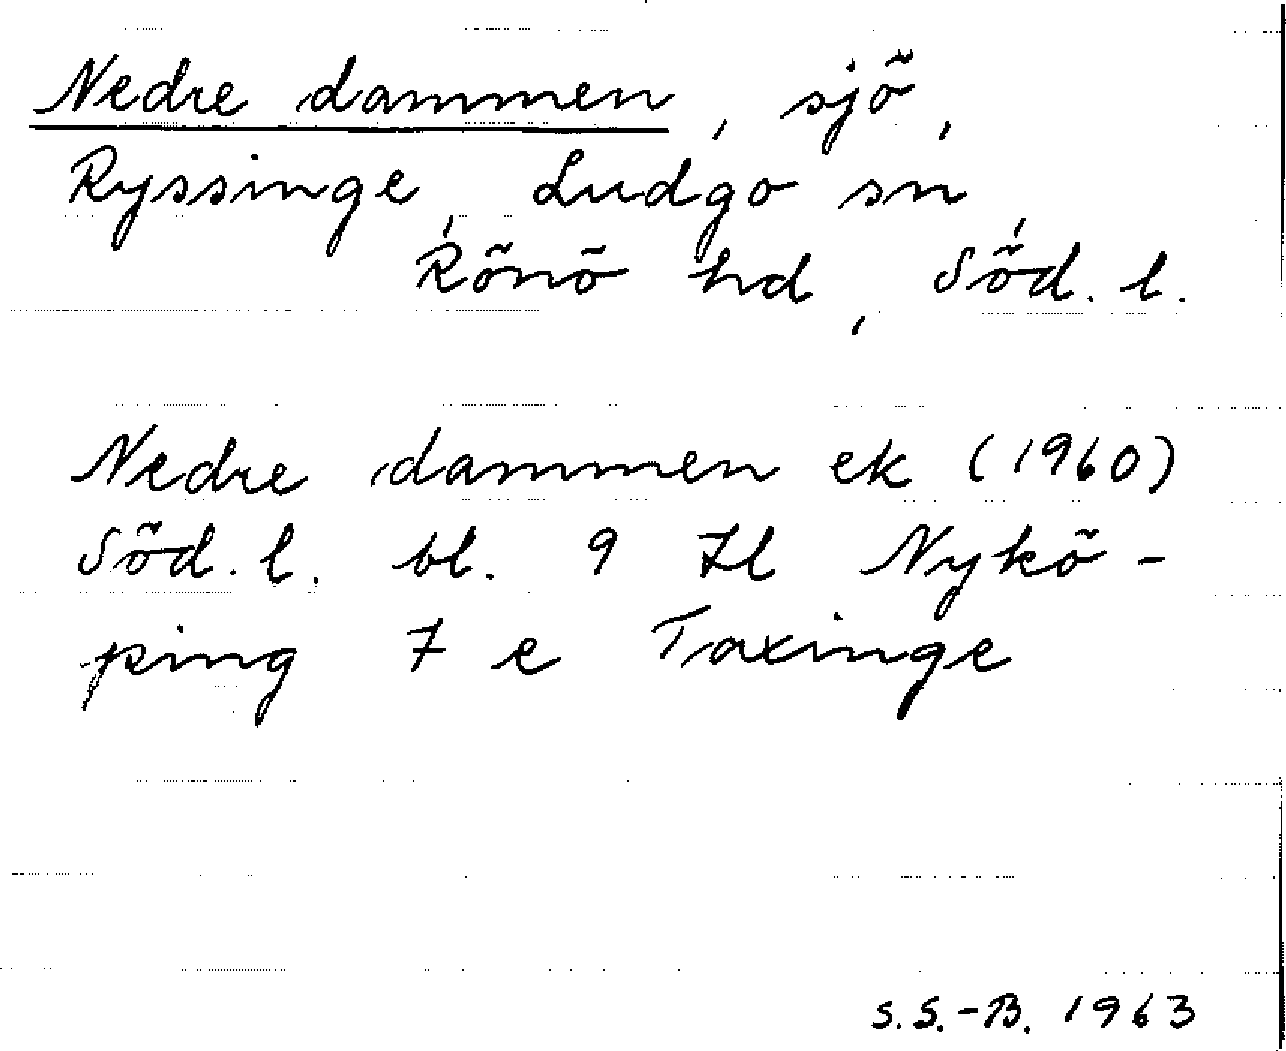 Nedre dammen, sjö,
Ryssinge, Ludgo sn,
Rönö hd, Söd. l.
Nedre dammen ek (1960)
Söd. l. bl. 9 Il Nykö-
ping 7 e Taxinge
S. S.-B. 1963